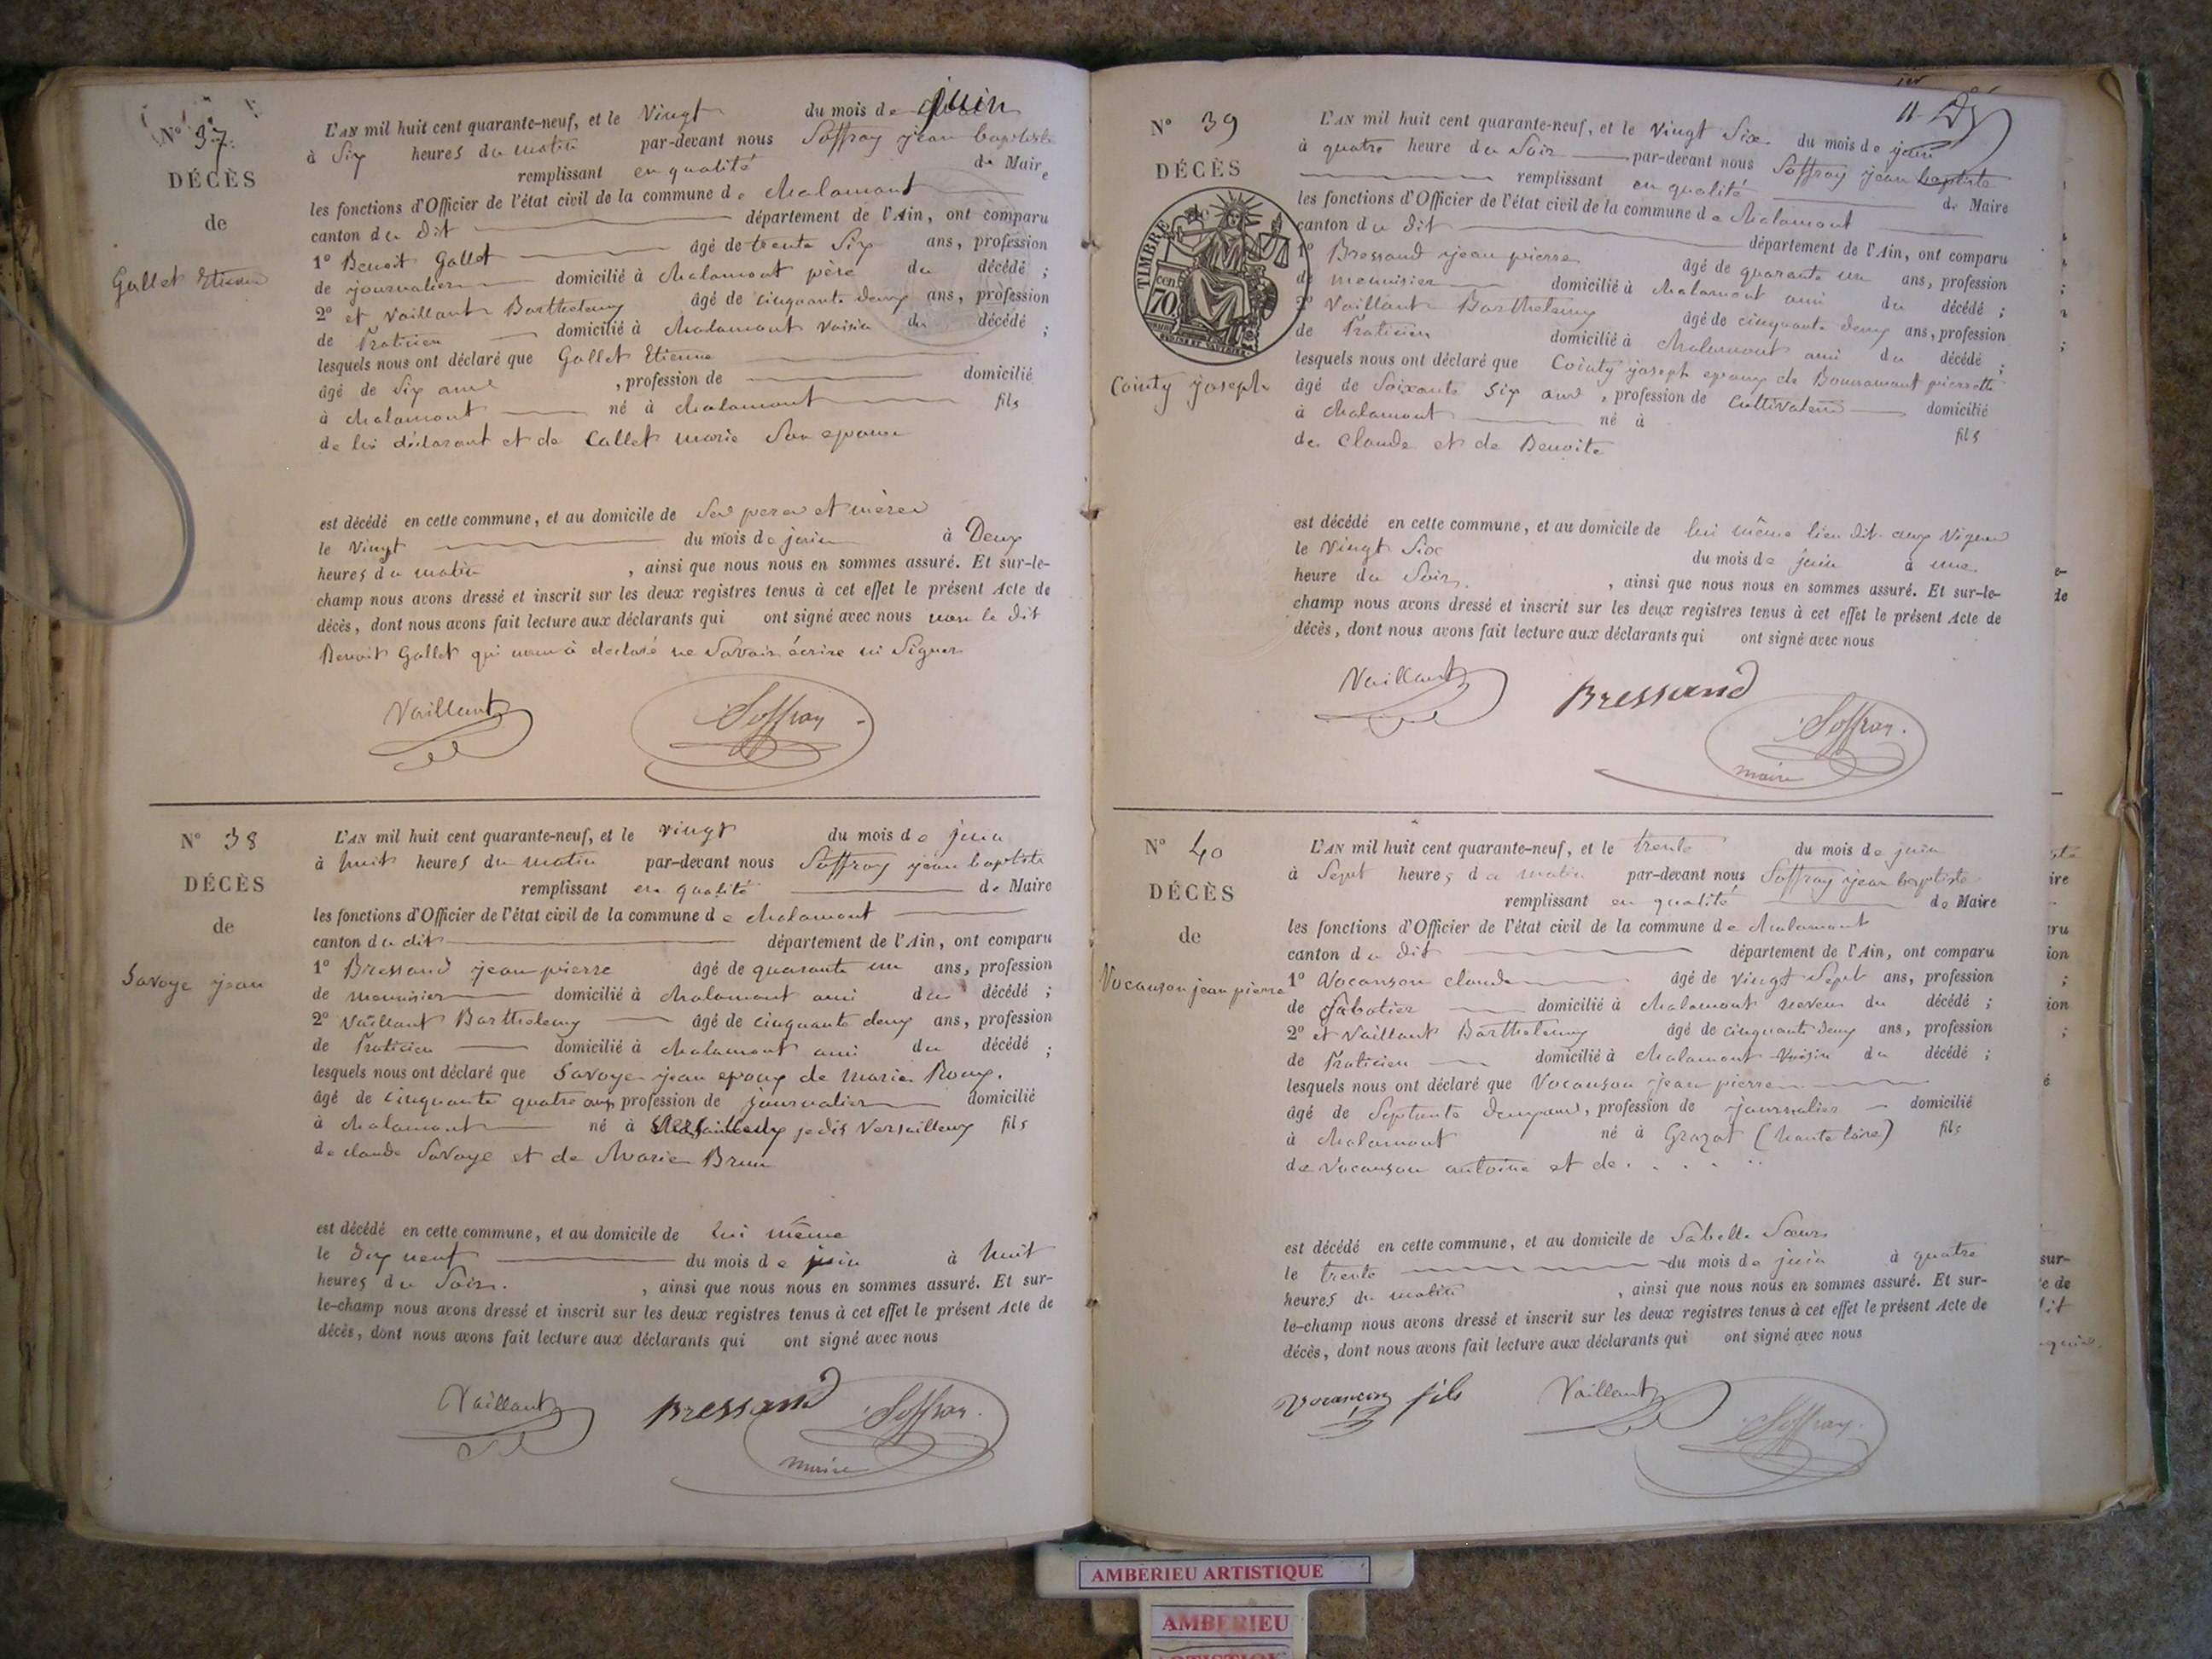 N° 37.
DÉCÈS
de
Gallet Etienne
L'AN mil huit cent quarante-neuf, et le Vingt du mois de juin
à Six heures du matin par-devant nous Soffray jean baptiste
remplissant en qualité de Maire
les fonctions d'Officier de l'état civil de la commune de chalamont
canton du dit département de l'Ain, ont comparu
1° Benoit Gallet âgé de trente Six ans, profession
de journalier domicilié à chalamont père du décédé ;
2° et Vaillant Barthelemy âgé de cinquante deux ans, profession
de Praticien domicilié à chalamont voisin du décédé ;
lesquels nous ont déclaré que Gallet Etienne
âgé de Six ans , profession de domicilié
à chalamont né à chalamont fils
de lui déclarant et de Callet marie Son epouse
est décédé en cette commune, et au domicile de Ses pere et mère
le Vingt du mois de juin à Deux
heures du matin , ainsi que nous nous en sommes assuré. Et sur-le-
champ nous avons dressé et inscrit sur les deux registres tenus à cet effet le présent Acte de
décès, dont nous avons fait lecture aux déclarants qui ont signé avec nous non le dit
Benoit Gallet qui nous à declaré ne Savoir écrire ni Signer
Vaillant Soffray
N° 38
DÉCÈS
de
Savoye jean
L'AN mil huit cent quarante-neuf, et le vingt du mois de juin
à huit heures du matin par-devant nous Soffray jean baptiste
remplissant en qualité de Maire
les fonctions d'Officier de l'état civil de la commune de chalamont
canton du dit département de l'Ain, ont comparu
1° Bressand jean pierre âgé de quarante un ans, profession
de menuisier domicilié à chalamont ami du décédé ;
2° Vaillant Barthelemy âgé de cinquante deux ans, profession
de Praticien domicilié à chalamont ami du décédé ;
lesquels nous ont déclaré que Savoye jean epoux de marie Roux.
âgé de cinquante quatre ans profession de journalier domicilié
à chalamont né à jedis Versailleux fils
de claude Savoye et de Marie Brun
est décédé en cette commune, et au domicile de lui même
le dix neuf du mois de juin à huit
heures du Soir. , ainsi que nous nous en sommes assuré. Et sur-
le-champ nous avons dressé et inscrit sur les deux registres tenus à cet effet le présent Acte de
décès, dont nous avons fait lecture aux déclarants qui ont signé avec nous
Vaillant Bressand Soffray
maire
11
N° 39
DÉCÈS
de
TIMBRE
70 cen
Cointy joseph
L'AN mil huit cent quarante-neuf, et le vingt Six du mois de juin
à quatre heure du Soir par-devant nous Soffray jean baptiste
remplissant en qualité de Maire
les fonctions d'Officier de l'état civil de la commune de chalamont
canton du dit département de l'Ain, ont comparu
1° Bressand jean pierre âgé de quarante un ans, profession
de menuisier domicilié à chalamont ami du décédé ;
2° Vaillant Barthelemy âgé de cinquante deux ans, profession
de Praticien domicilié à chalamont ami du décédé ;
lesquels nous ont déclaré que Cointy joseph epoux de pierrette
âgé de Soixante Six ans , profession de Cultivateur domicilié
à chalamont né à fils
de Claude et de Benoite
est décédé en cette commune, et au domicile de lui même lieu dit aux Vignes
le Vingt Six du mois de juin à une
heure du Soir. , ainsi que nous nous en sommes assuré. Et sur-le-
champ nous avons dressé et inscrit sur les deux registres tenus à cet effet le présent Acte de
décès, dont nous avons fait lecture aux déclarants qui ont signé avec nous
Vaillant Bressand Soffray.
maire
N° 40
DÉCÈS
de
Vocanson jean pierre
L'AN mil huit cent quarante-neuf, et le trente du mois de juin
à Sept heures du matin par-devant nous Soffray jean baptiste
remplissant en qualité de Maire
les fonctions d'Officier de l'état civil de la commune de chalamont
canton du dit département de l'Ain, ont comparu
1° Vocanson claude âgé de vingt Sept ans, profession
de Sabotier domicilié à chalamont neveu du décédé ;
2° et Vaillant Barthelemy âgé de cinquante deux ans, profession
de Praticien domicilié à chalamont Voisin du décédé ;
lesquels nous ont déclaré que Vocanson jean pierre
âgé de Septante deux ans, profession de journalier domicilié
à chalamont né à Grazat (haute loire) fils
de Vocanson antoine et de . . . . .
est décédé en cette commune, et au domicile de Sa belle Sœur
le trente du mois de juin à quatre
heures du matin , ainsi que nous nous en sommes assuré. Et sur-
le-champ nous avons dressé et inscrit sur les deux registres tenus à cet effet le présent Acte de
décès, dont nous avons fait lecture aux déclarants qui ont signé avec nous
Vocanson fils Vaillant Soffray.
AMBERIEU ARTISTIQUE
AMBERIEU
ARTISTIQUE